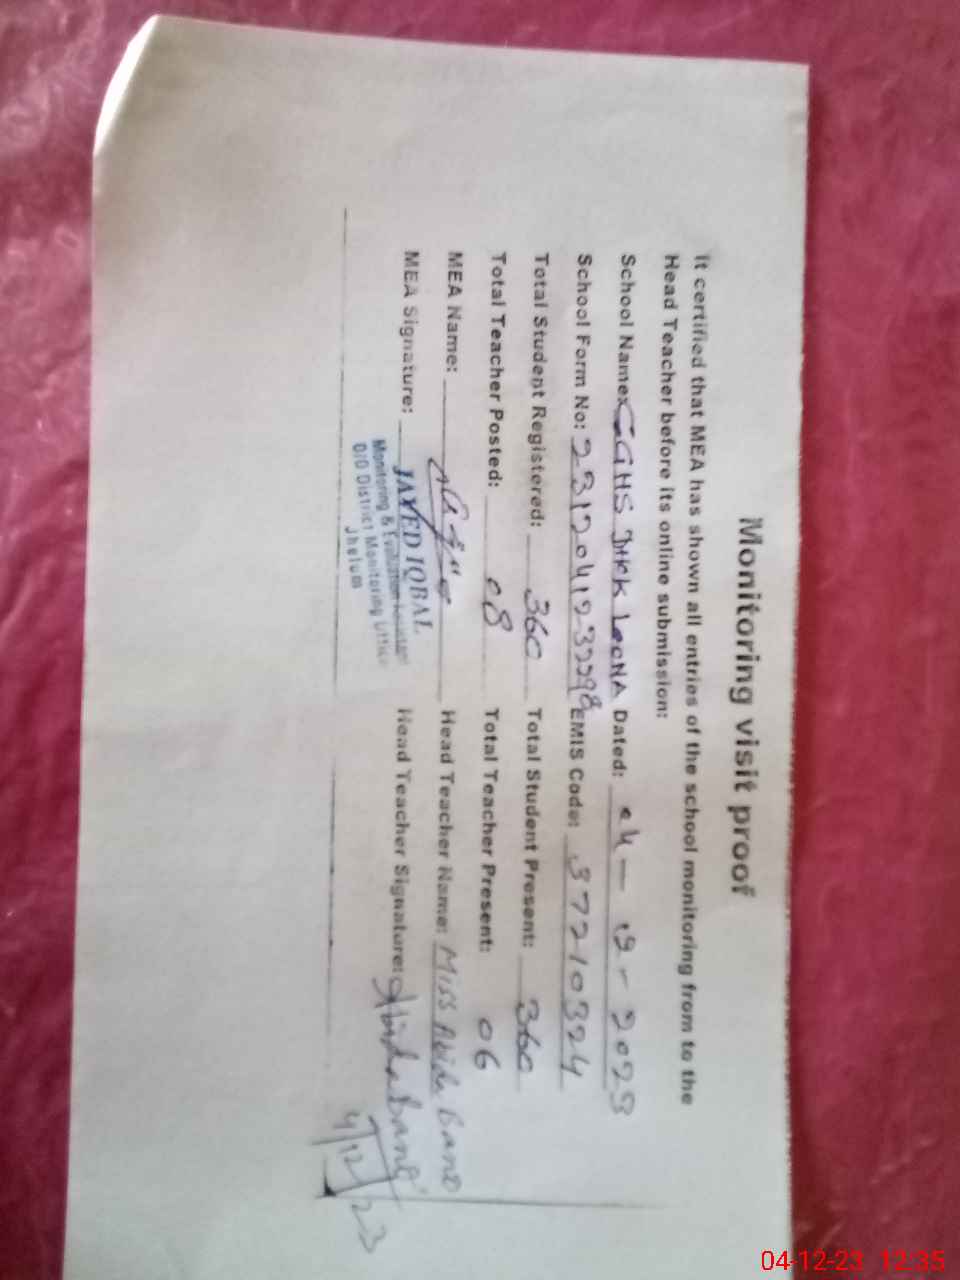 Monitoring visit proof
It certified that MEA has shown all entries of the school monitoring from to the
Head Teacher before its online submission:
School Name: GGHS Dated: 04-12-2023
School Form No: EMIS Code: 37210324
Total Student Registered: 360 Total Student Present: 360
Total Teacher Posted: 08 Total Teacher Present: 06
MEA Name: Head Teacher Name: Miss Abida Bano
MEA Signature: Head Teacher Signature: Abida Bano
4/12/23
JAVED IQBAL
Monitoring & Evaluation Assistant
O/O District Monitoring Office
Jhelum
04-12-23 12:35